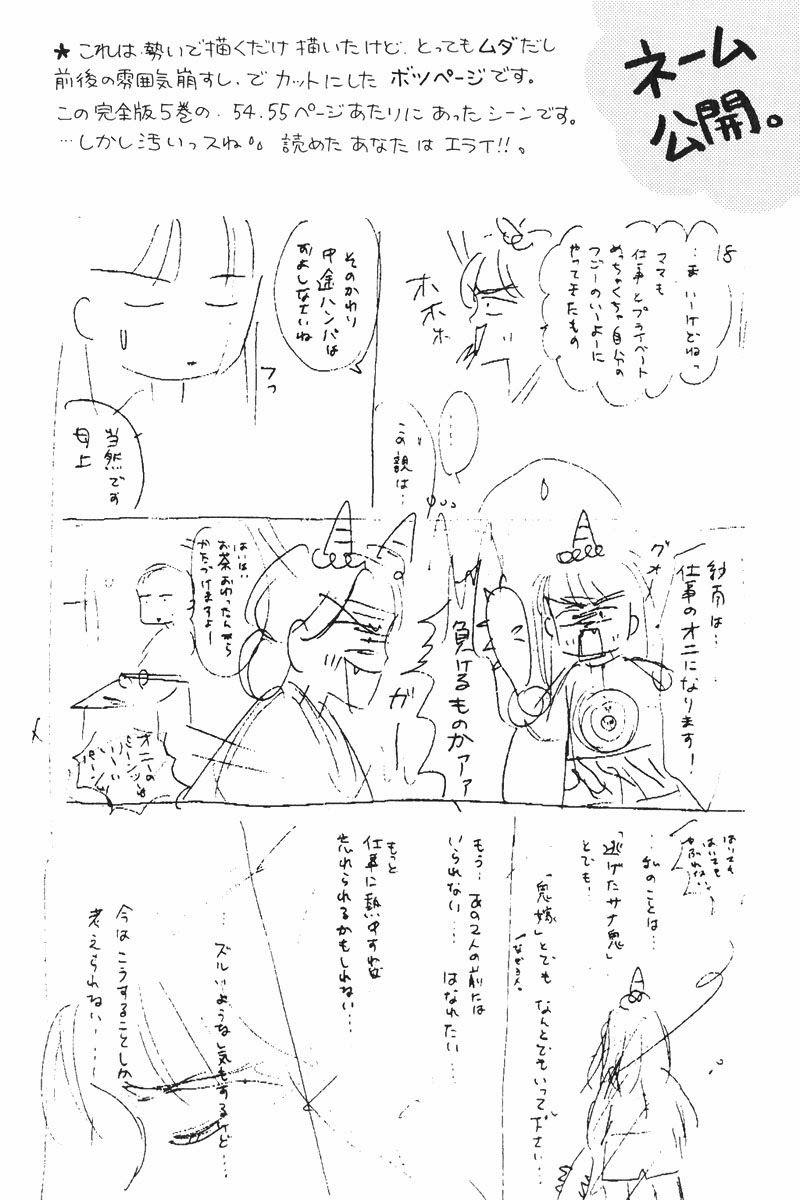 ネーム
公開。
★これは勢いで描くだけ描いたけど、とってもムダだし
前後の雰囲気崩すし、でカットにしたボツページです。
この完全版5巻の、54.55ページあたりにあったシーンです。
…しかし汚いっスね。 読めたあなたはエライ!!。
18
…ま いーけどねっ
ママも
仕事とプライベート
めっちゃくちゃ自分の
つごーのいーよーに
やってきたもの
ホホホ
そのかわり
中途ハンパは
およしなさいね
フっ
当然です
母上
……
この親は…
紗南は…
仕事のオニになります!
グオー
負けるものかァァ
ガ
はいはい
お茶おわったんなら
かたづけますよー
オニーの
パーンツは
いーい
パーンツ
はいても
はいても
やぶれない
…私のことは…
「逃げたサナ鬼」
とでも…
「鬼嫁」とでも なんとでもいって下さい…
もう… あの2人の前には
いられない… はなれたい…
もっと
仕事に熱中すれば
忘れられるかもしれない…
…ズルいような気もするけど…
今は こうすることしか
考えられない…